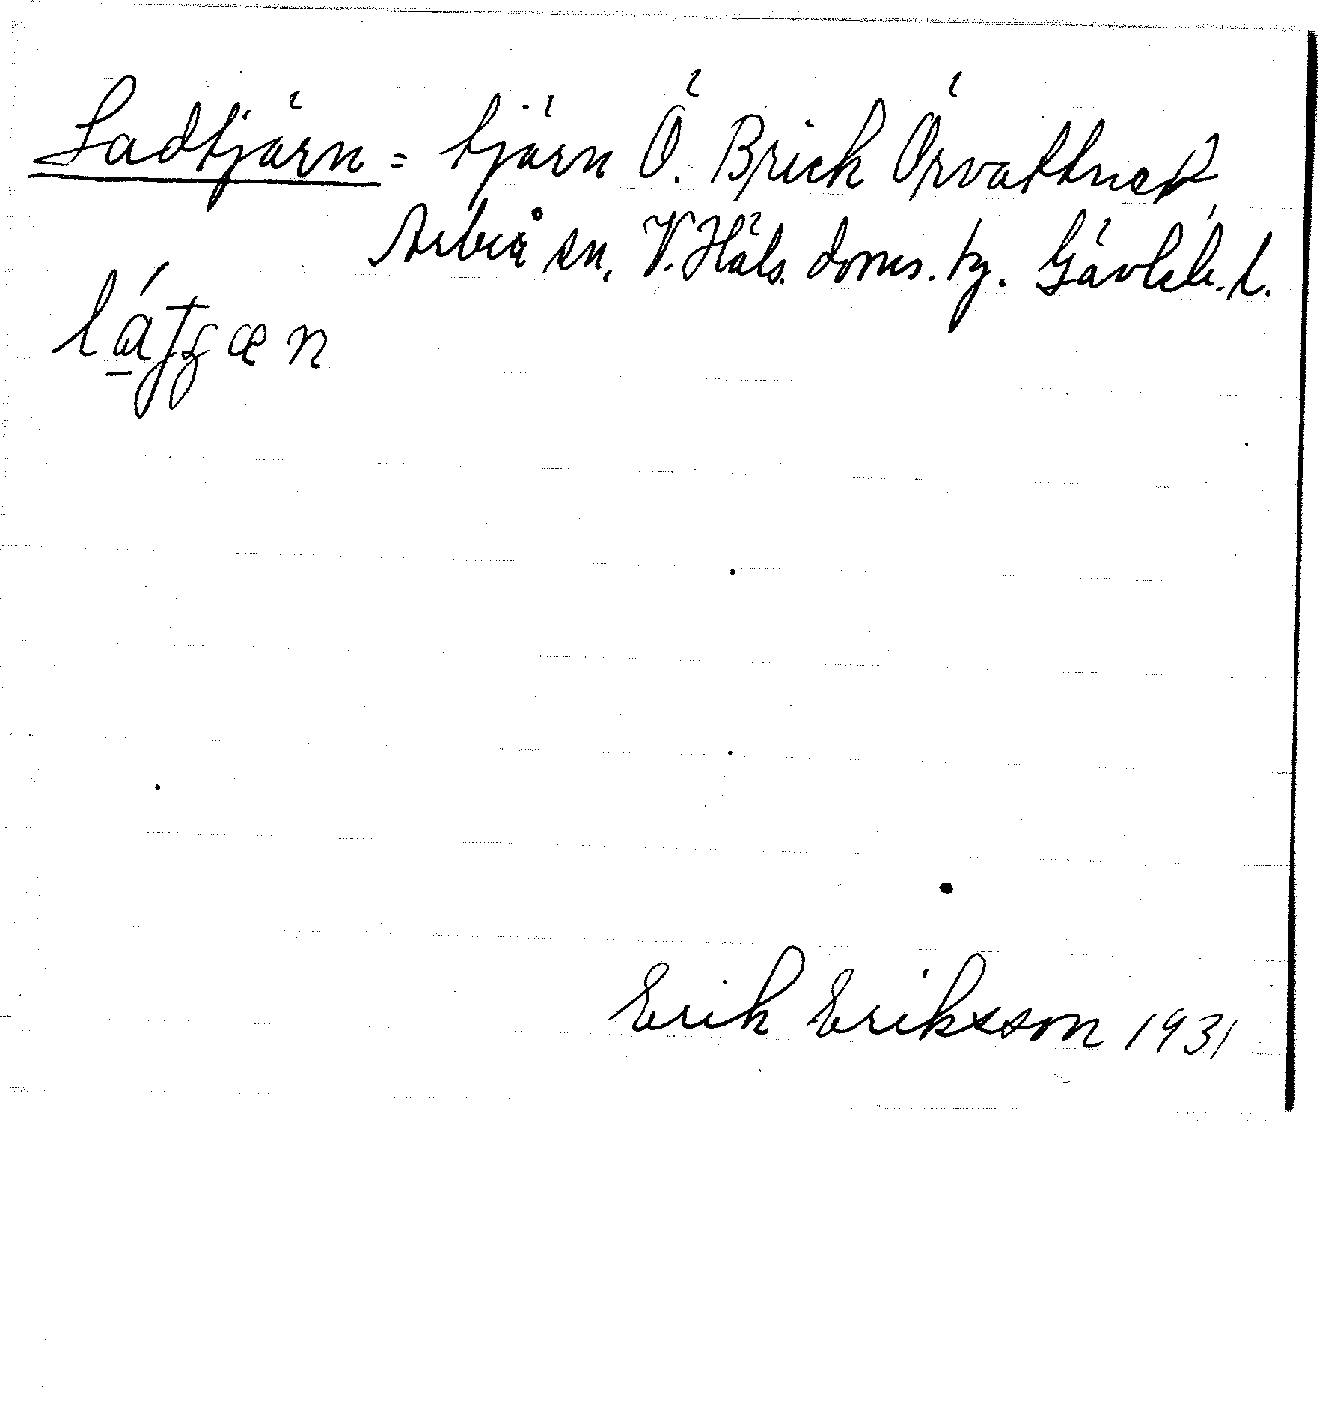 Ladtjärn = tjärn Ö. Brick Örvattnet,
Arbrå sn, V. Häls. doms. tg. Gävleb. l.
Erik Eriksson 1931